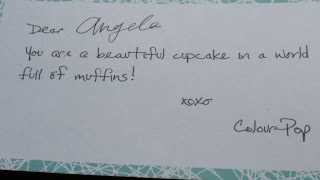 Dear Angela
You are a beautiful cupcake in a world
full of muffins!
xoxo
ColourPop